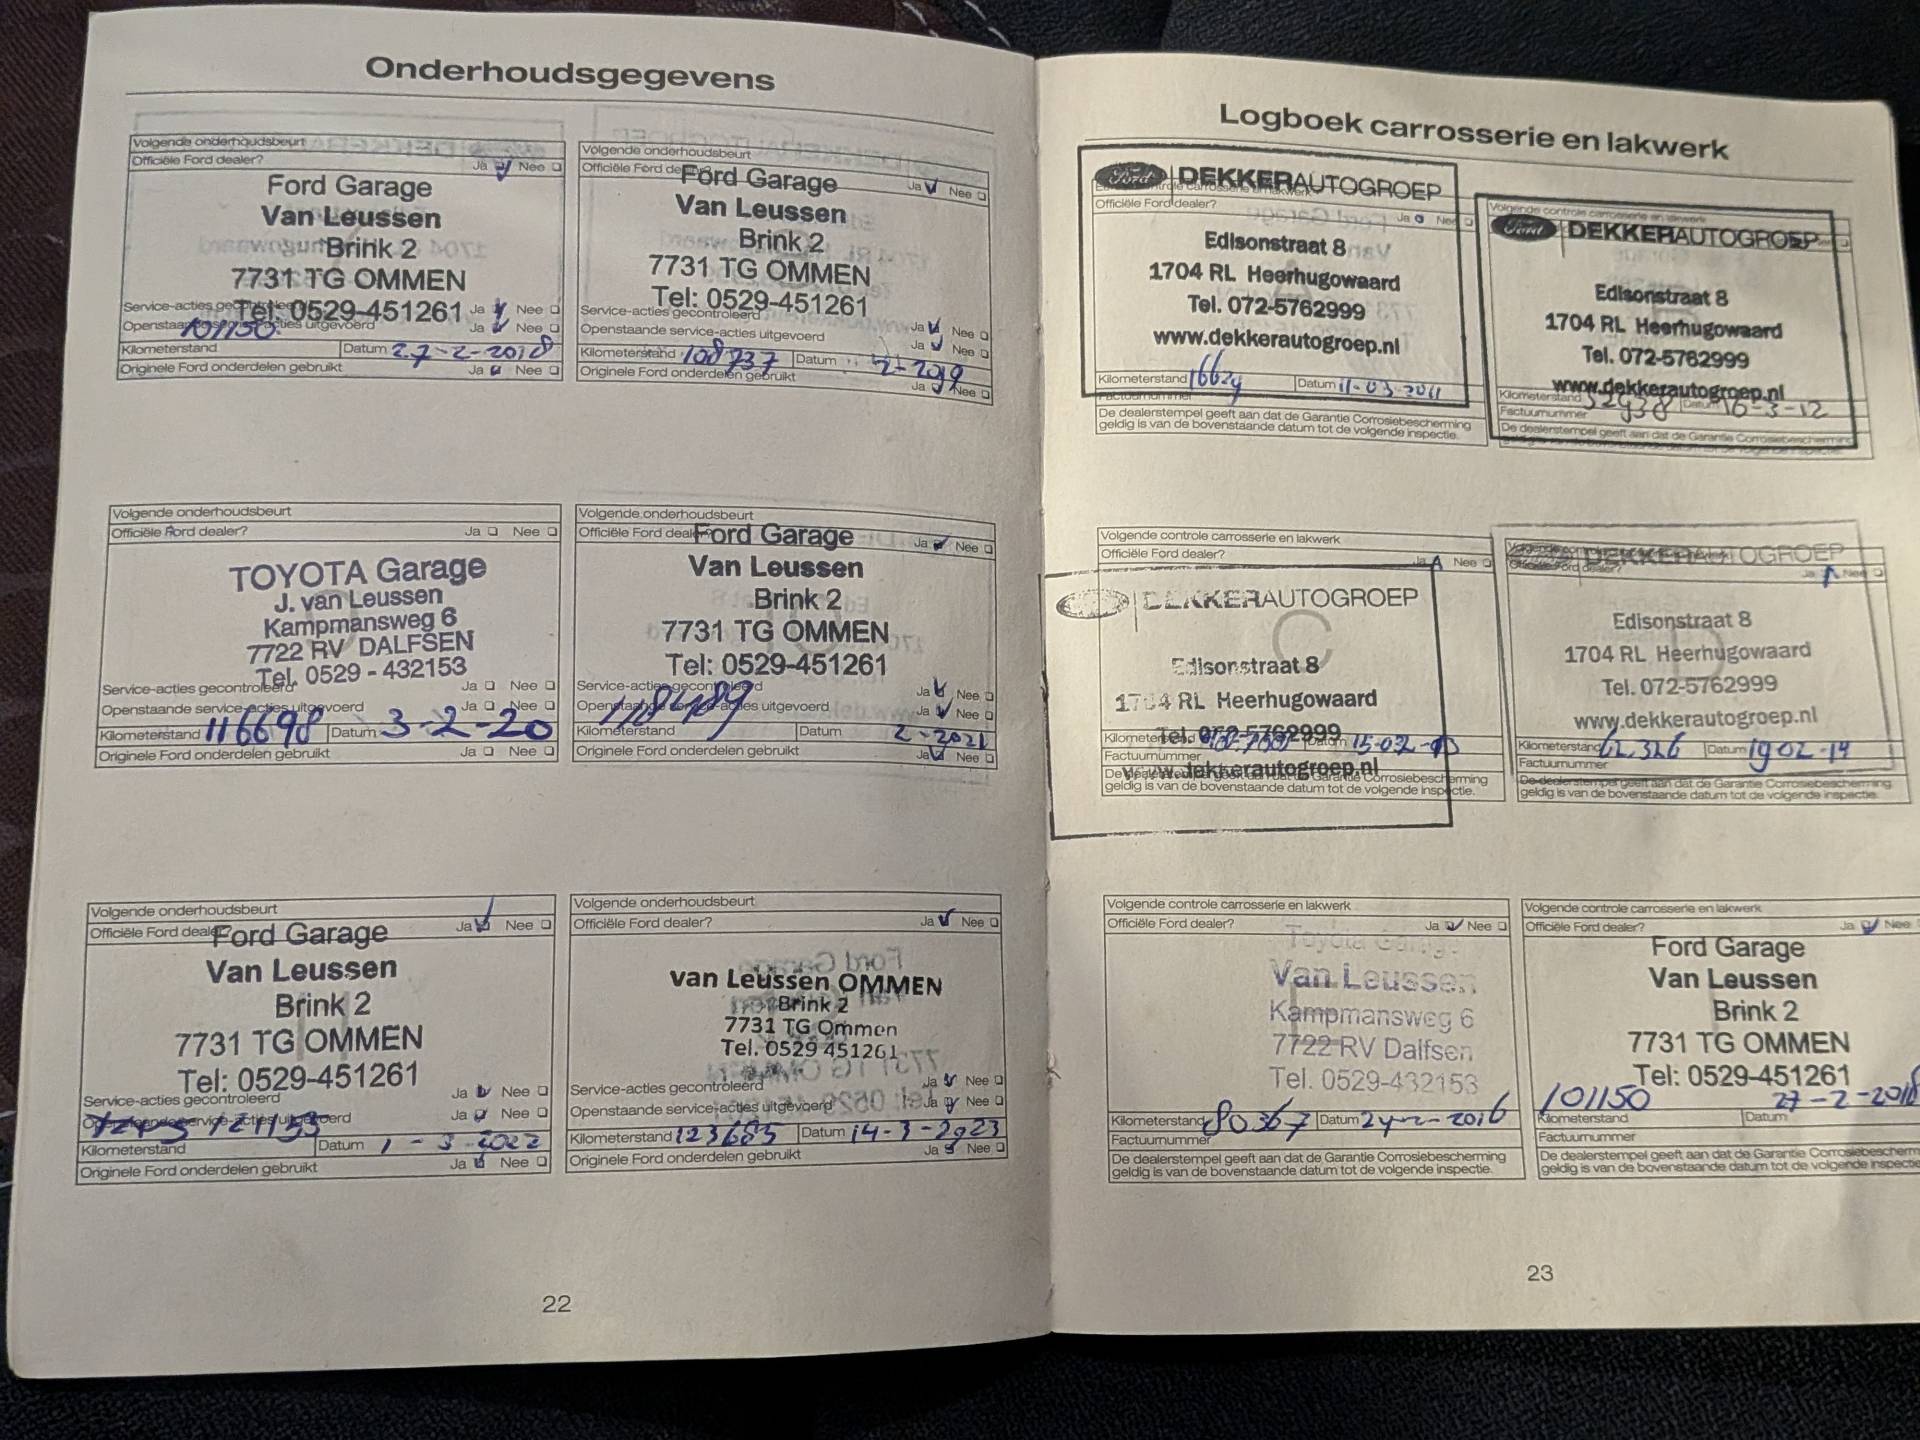 Onderhoudsgegevens
Volgende onderhoudsbeurt
Officiële Ford dealer? Ja Nee
Ford Garage
Van Leussen
Brink 2
7731 TG OMMEN
Tel: 0529-451261
Service-acties gecontroleerd Ja Nee
Openstaande service-acties uitgevoerd Ja Nee
101150
Kilometerstand Datum 27-2-2018
Originele Ford onderdelen gebruikt Ja Nee
Volgende onderhoudsbeurt
Officiële Ford dealer? Ja Nee
Ford Garage
Van Leussen
Brink 2
7731 TG OMMEN
Tel: 0529-451261
Service-acties gecontroleerd Ja Nee
Openstaande service-acties uitgevoerd Ja Nee
Kilometerstand 108737 Datum 2-2019
Originele Ford onderdelen gebruikt Ja Nee
Volgende onderhoudsbeurt
Officiële Ford dealer? Ja Nee
TOYOTA Garage
J. van Leussen
Kampmansweg 6
7722 RV DALFSEN
Tel. 0529 - 432153
Service-acties gecontroleerd Ja Nee
Openstaande service-acties uitgevoerd Ja Nee
Kilometerstand 116698 Datum 3-2-20
Originele Ford onderdelen gebruikt Ja Nee
Volgende onderhoudsbeurt
Officiële Ford dealer? Ja Nee
Ford Garage
Van Leussen
Brink 2
7731 TG OMMEN
Tel: 0529-451261
Service-acties gecontroleerd Ja Nee
Openstaande service-acties uitgevoerd Ja Nee
118489
Kilometerstand Datum 2-2021
Originele Ford onderdelen gebruikt Ja Nee
Volgende onderhoudsbeurt
Officiële Ford dealer? Ja Nee
Ford Garage
Van Leussen
Brink 2
7731 TG OMMEN
Tel: 0529-451261
Service-acties gecontroleerd Ja Nee
Openstaande service-acties uitgevoerd Ja Nee
121153
Kilometerstand Datum 1-3-2022
Originele Ford onderdelen gebruikt Ja Nee
Volgende onderhoudsbeurt
Officiële Ford dealer? Ja Nee
van Leussen OMMEN
Brink 2
7731 TG Ommen
Tel. 0529 451261
Service-acties gecontroleerd Ja Nee
Openstaande service-acties uitgevoerd Ja Nee
Kilometerstand 123685 Datum 14-3-2023
Originele Ford onderdelen gebruikt Ja Nee
22
Logboek carrosserie en lakwerk
Ford DEKKERAUTOGROEP
Officiële Ford dealer? Ja Nee
Edisonstraat 8
1704 RL Heerhugowaard
Tel. 072-5762999
www.dekkerautogroep.nl
Kilometerstand 16624 Datum 11-03-2011
Factuurnummer
De dealerstempel geeft aan dat de Garantie Corrosiebescherming
geldig is van de bovenstaande datum tot de volgende inspectie.
Volgende controle carrosserie en lakwerk
Ford DEKKERAUTOGROEP
Edisonstraat 8
1704 RL Heerhugowaard
Tel. 072-5762999
www.dekkerautogroep.nl
Kilometerstand 32938 Datum 16-3-12
Factuurnummer
De dealerstempel geeft aan dat de Garantie Corrosiebescherming
geldig is van de bovenstaande datum tot de volgende inspectie.
Volgende controle carrosserie en lakwerk
Officiële Ford dealer? Ja Nee
DEKKERAUTOGROEP
C
Edisonstraat 8
1704 RL Heerhugowaard
Tel. 072-5762999
Kilometerstand Datum 15-02-13
Factuurnummer
www.dekkerautogroep.nl
De dealerstempel geeft aan dat de Garantie Corrosiebescherming
geldig is van de bovenstaande datum tot de volgende inspectie.
Volgende controle carrosserie en lakwerk
DEKKERAUTOGROEP
Officiële Ford dealer? Ja Nee
Edisonstraat 8
1704 RL Heerhugowaard
Tel. 072-5762999
www.dekkerautogroep.nl
Kilometerstand 62.326 Datum 19 02-14
Factuurnummer
De dealerstempel geeft aan dat de Garantie Corrosiebescherming
geldig is van de bovenstaande datum tot de volgende inspectie.
Volgende controle carrosserie en lakwerk
Officiële Ford dealer? Ja Nee
Toyota Garage
Van Leussen
Kampmansweg 6
7722 RV Dalfsen
Tel. 0529-432153
Kilometerstand 80367 Datum 24-2-2016
Factuurnummer
De dealerstempel geeft aan dat de Garantie Corrosiebescherming
geldig is van de bovenstaande datum tot de volgende inspectie.
Volgende controle carrosserie en lakwerk
Officiële Ford dealer? Ja Nee
Ford Garage
Van Leussen
Brink 2
7731 TG OMMEN
Tel: 0529-451261
101150 27-2-2018
Kilometerstand Datum
Factuurnummer
De dealerstempel geeft aan dat de Garantie Corrosiebescherm
geldig is van de bovenstaande datum tot de volgende inspectie
23